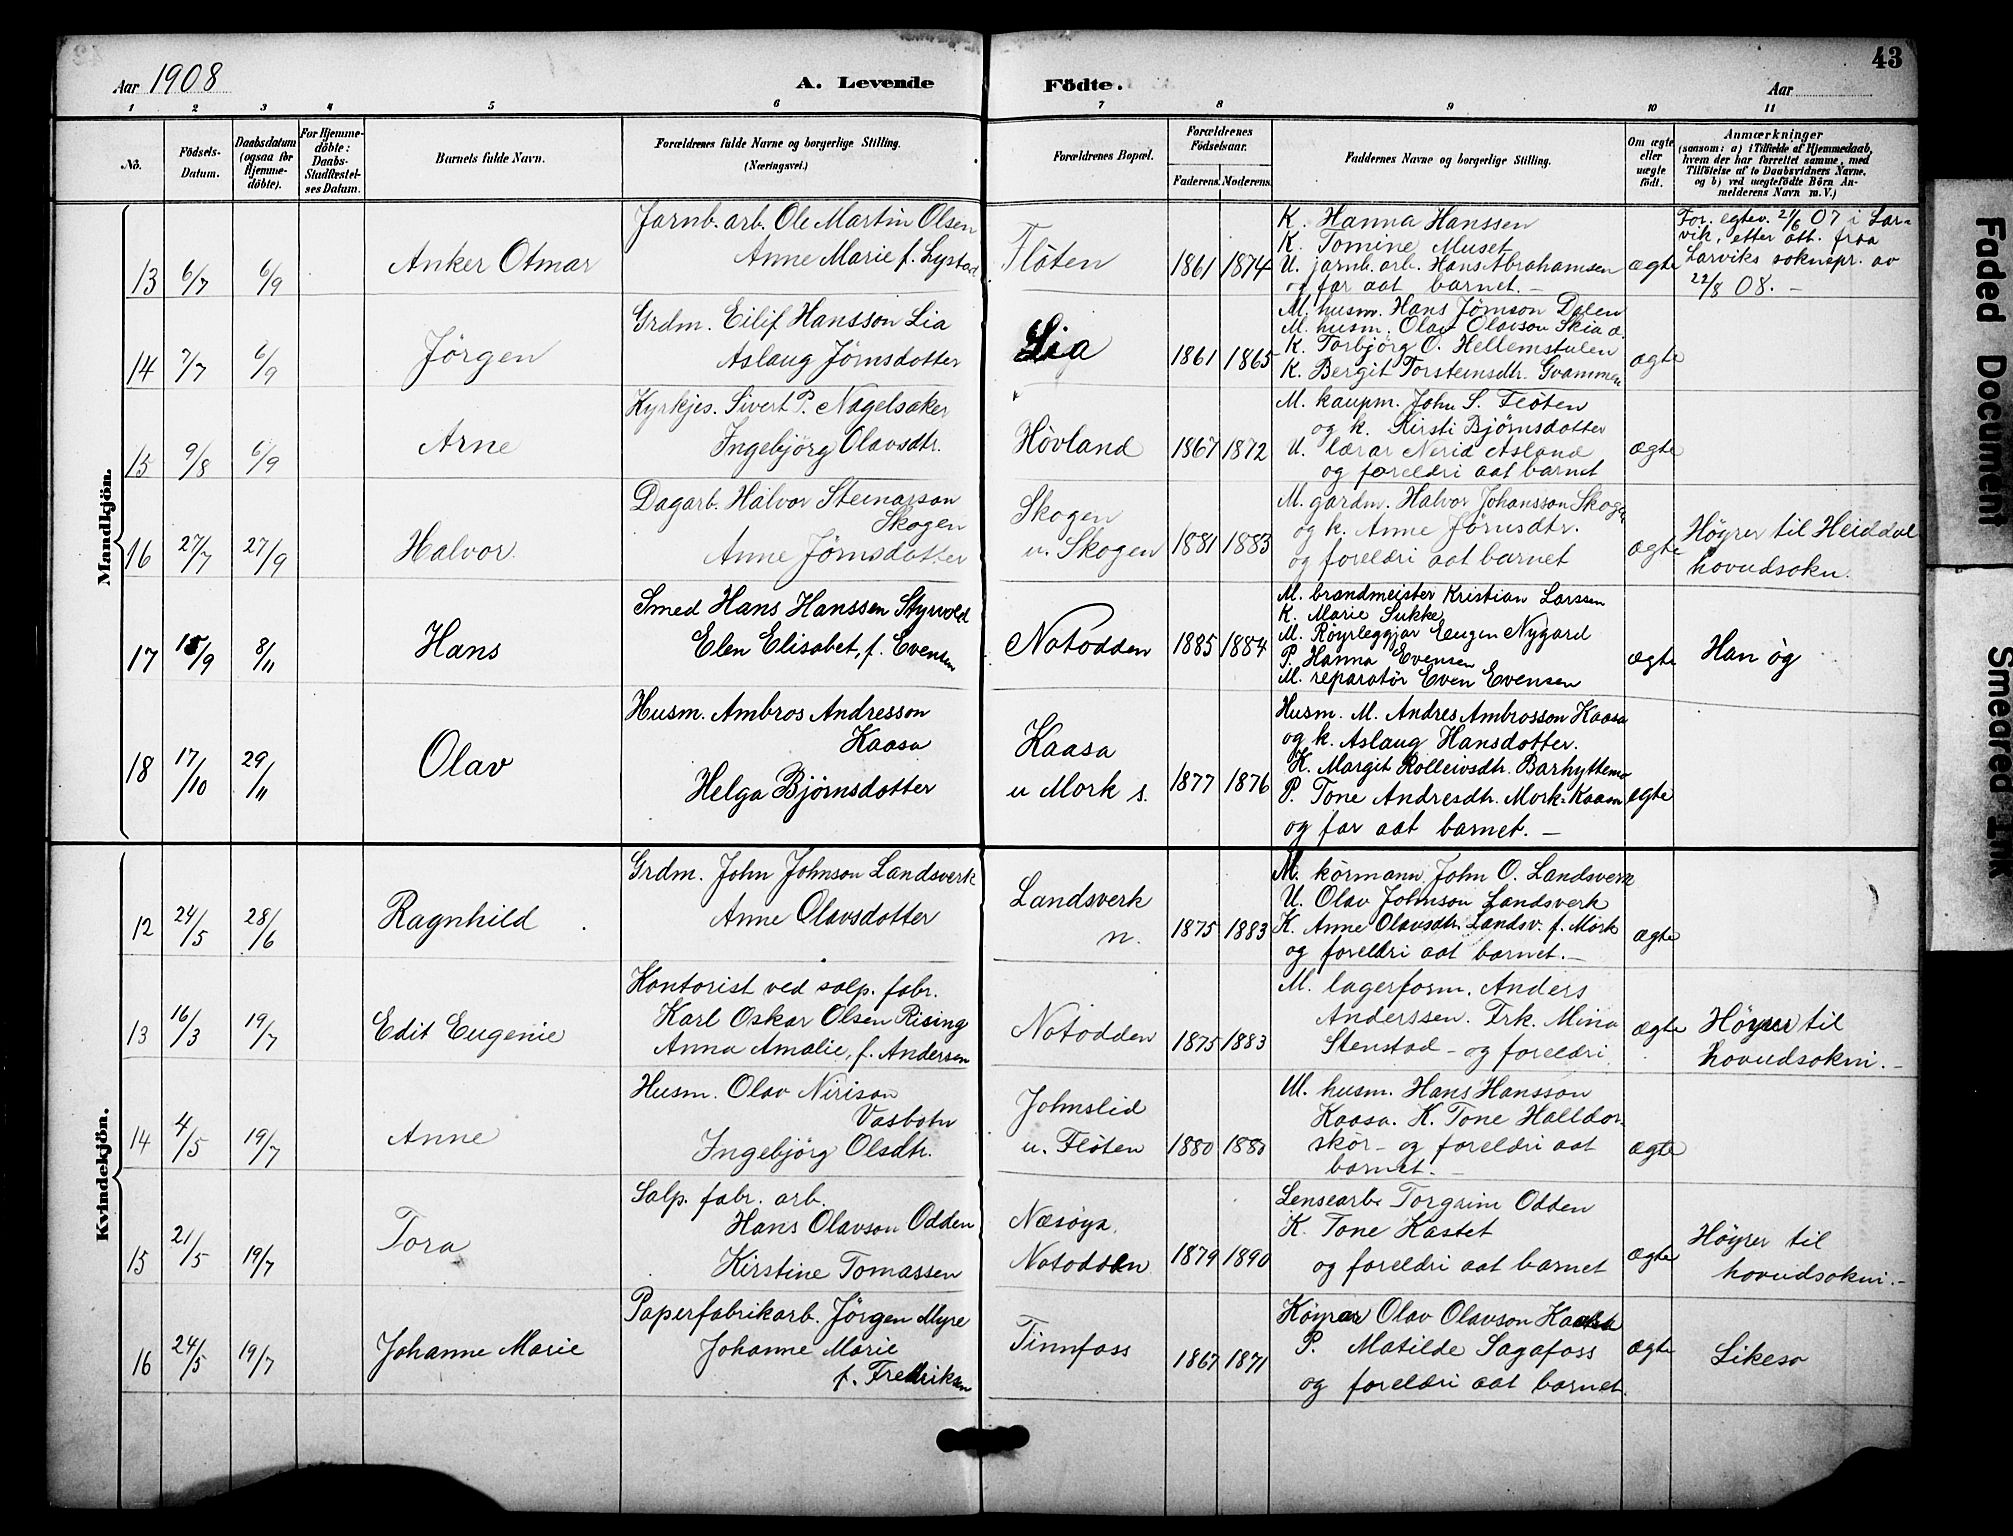 Aar 1908
A. Levende Födte.
43
Aar
1 2 3 4 5 6 7 8 9 10 11
Nô.
Födsels-Datum.
Daabsdatum (ogsaa for Hjemme-döbte).
For Hjemme-döbte: Daabs-Stadfæstel-ses Datum.
Barnets fulde Navn.
Forældrenes fulde Navne og borgerlige Stilling. (Næringsvei.)
Forældrenes Bopæl.
Forældrenes Födselsaar.
Faderens. Moderens.
Faddernes Navne og borgerlige Stilling.
Om ægte eller uægte födt.
Anmærkninger
(saasom: a) i Tilfælde af Hjemmedaab, hvem der har forrettet samme, med Tilföielse af to Daabsvidners Navne, og b) ved uægtefödte Börn An-melderens Navn m.V.)
Mandkjön.
13 6/7 6/9 Anker Otmar
Jarnb. arb. Ole Martin Olsen
Anne Marie f. Lystad
Flöten
1861 1874
K. Hanna Hanssen
K. Tomine Muset
U. jarnb. arb. Hans Abrahamsen
og far aat barnet. –
ægte
For. egtev. 21/6 07 i Lar-
vik, etter att. fraa
Larviks soknepr. av
22/8 08. –
14 7/7 6/9 Jörgen
Grdm. Eilif Hansson Lia
Aslaug Jörnsdotter
Lia
1861 1865
M. husm. Hans Jörnson Dalen
M. husm. Olav Olavson Skia
K. Torbjörg O. Hellemstulen
K. Bergit Torsteinsdtr. Gvammen
ægte
15 9/8 6/9 Arne
Kyrkjes. Sivert P. Nagelsaker
Ingebjörg Olavsdtr.
Hövland
1867 1872
M. kaupm. John S. Flöten
og k. Kirsti Björnsdotter
U. lærar Nerid Asland
og foreldri aat barnet
ægte
16 27/7 27/9 Halvor.
Dagarb. Halvor Steinarson
Skogen
Anne Jörnsdotter
Skogen
u. Skogen
1881 1883
M. gardm. Halvor Johansson Skogen
og k. Anne Jörnsdtr.
og foreldri aat barnet
ægte
Höyrer til Heiddal
hovudsokn.
17 15/9 8/11 Hans
Smed Hans Hanssen Styrvold
Elen Elisabet, f. Evensen
Notodden
1885 1884
M. brandmeister Kristian Larssen
K. Marie Sukke
M. Röyrleggjar Eugen Nygard
P. Hanna Evensen
M. reparatör Even Evensen
ægte
Han òg
18 17/10 29/11 Olav
Husm. Ambros Andresson
Kaasa
Helga Björnsdotter
Kaasa
u Mork s.
1877 1876
Husm. M. Andres Ambrosson Kaasa
og k. Aslaug Hansdotter.
K. Margit Rolleivsdtr. Barhyttemo
P. Tone Andresdtr. Mork-Kaasa
og far aat barnet. –
ægte
Kvindekjön.
12 24/5 28/6 Ragnhild
Grdm. John Johnson Landsverk
Anne Olavsdotter
Landsverk
n.
1875 1883
M. körmann John O. Landsverk
U. Olav Johnson Landsverk
K. Anne Olavsdtr. Landsv. f. Mork
og foreldri aat barnet. –
ægte
13 16/3 19/7 Edit Eugenie
Kontorist ved salp. fabr.
Karl Oskar Olsen Rising
Anna Amalie, f. Andersen
Notodden
1875 1883
M. lagerform. Anders
Anderssen. Frk. Mina
Stenstad – og foreldri
ægte
Höyrer til
hovudsokni. –
14 4/5 19/7 Anne
Husm. Olav Nirison
Vasbotn
Ingebjörg Olsdtr.
Johnslid
u. Flöten
1880 1880
M. husm. Hans Hansson
Kaasa. K. Tone Halldor-
skör – og foreldri aat
barnet. –
ægte
15 21/5 19/7 Tora
Salp. fabr. arb.
Hans Olavson Odden
Kirstine Tomassen
Næsöya,
Notodden
1879 1890
Lensearb. Torgrim Odden
K. Tone Kastet
og foreldri aat barnet
ægte
Höyrer til
hovudsokni. –
16 24/5 19/7 Johanne Marie
Paperfabrikarb. Jörgen Myre
Johanne Marie
f. Fredriksen
Tinnfoss
1867 1871
Köyrar Olav Olavson
P. Matilde Sagafoss
og foreldri aat barnet.
ægte
Likeso
Faded Document
Smeared Ink